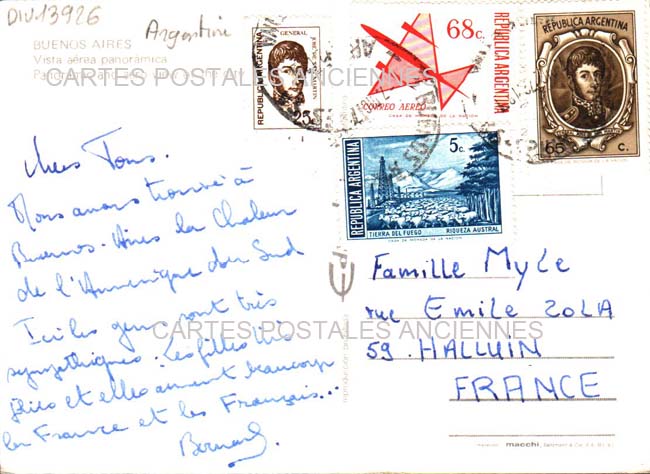 DIV13926
Argentine
BUENOS AIRES
Vista aérea panorámica
CARTES POSTALES ANCIENNES
REPUBLICA ARGENTINA
GENERAL
25 c.
68 c.
REPUBLICA ARGENTINA
CORREO AEREO
CASA DE MONEDA DE LA NACION
REPUBLICA ARGENTINA
65 c.
CASA DE MONEDA DE LA NACION
REPUBLICA ARGENTINA
5 c.
TIERRA DEL FUEGO RIQUEZA AUSTRAL
CASA DE MONEDA DE LA NACION
Chers Tous.
Nous avons trouvé à
Buenos-Aires la Chaleur
de l'Amérique du Sud
Ici les gens sont très
sympathiques. Les filles très
jolies et elles aiment beaucoup
la France et les Français...
Bernard
Famille Myle
rue Emile ZOLA
59. HALLUIN
FRANCE
CARTES POSTALES ANCIENNES
macchi,